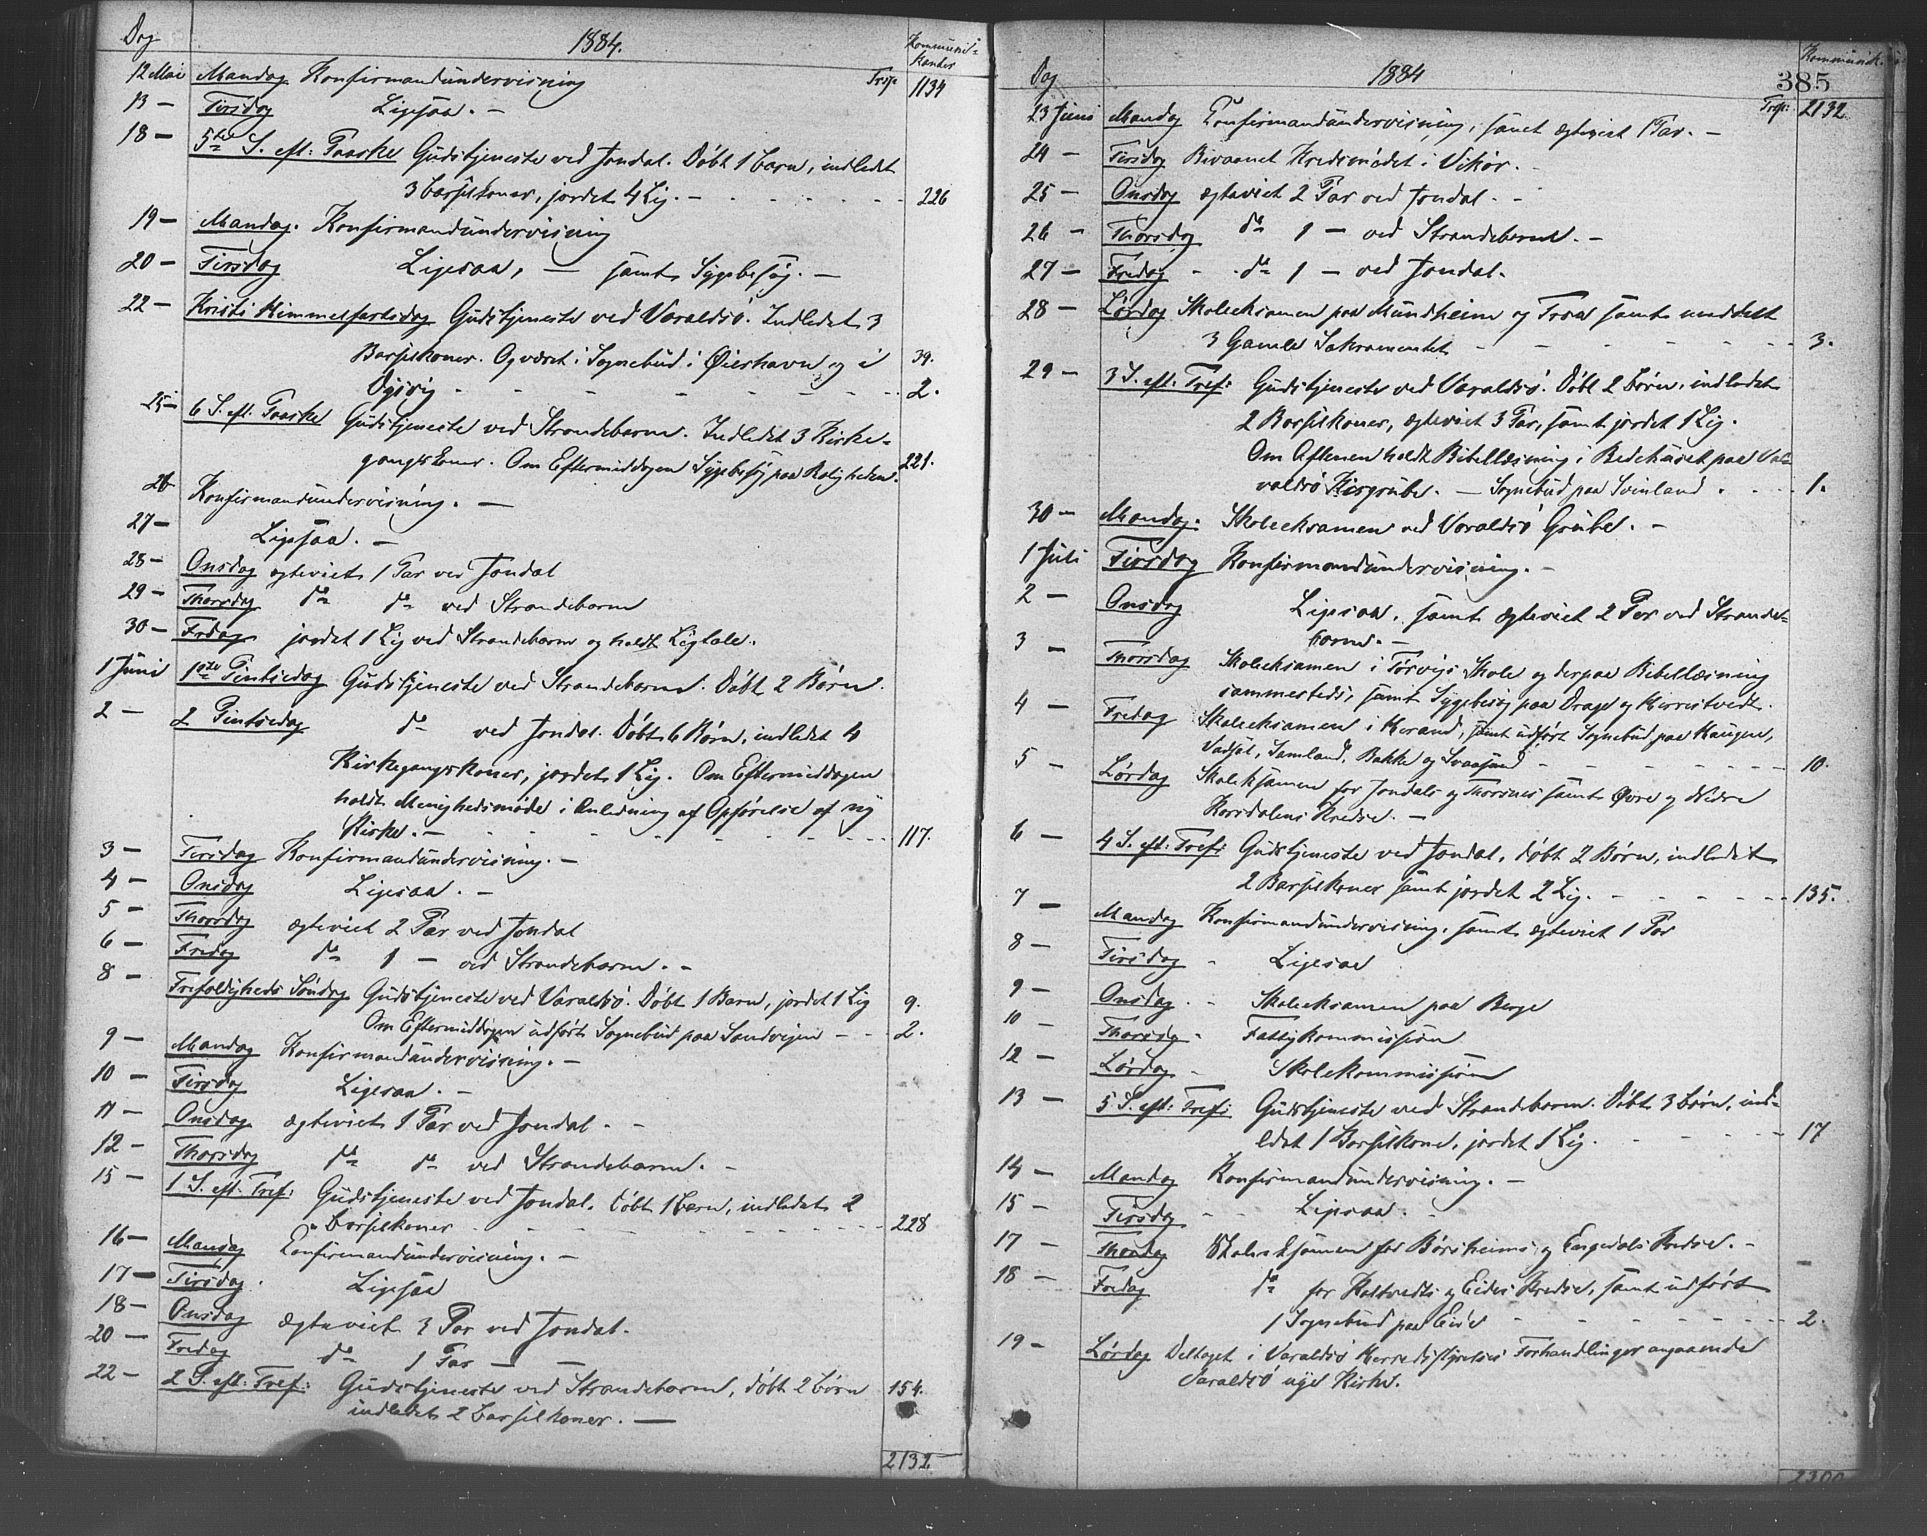 Dag 1884. Kommuni-
kanter
12 Mai Mandag Konfirmandundervisning Trsp. 1134
13 — Tirsdag Ligesaa. —
18 — 5te S. eft: Paaske Gudstjeneste ved Jondal. Døbt 1 barn, indledet
3 barselkoner, jordet 4 Lig. — 226
19 — Mandag. Konfirmandundervisning
20 — Tirsdag Ligesaa, — samt Sygebesøg. —
22 — Kristi Himmelfartsdag Gudstjeneste ved Varaldsö. Indledet 3
Barselkoner. Og været i Sognebud i Øierhavn og i 39.
2.
25 — 6 S. eft. Paaske Gudstjeneste ved Strandebarm. Indledet 3 Kirke-
gangskoner. Om Eftermiddagen Sygebesøg paa Roligheden. 221.
26 Konfirmandundervisning. —
27 — Ligesaa. —
28 — Onsdag ægteviet 1 Par ved Jondal
29 — Thorsdag do do ved Strandebarm
30 — Frdag jordet 1 Lig ved Strandebarm og holdt Ligtale.
1 Juni 1ste Pintsedag Gudstjeneste ved Strandebarm. Døbt 2 Børn.
2 — 2 Pintsedag do ved Jondal. Døbt 6 Børn, indledet 4
Kirkegangskoner, jordet 1 Lig. Om Eftermiddagen
holdt Menighedsmøde i Anledning af Opførelse af ny
Kirke. — 117.
3 — Tirsdag Konfirmandundervisning. —
4 — Onsdag Ligesaa. —
5 — Thorsdag ægteviet 2 Par ved Jondal
6 — Fredag do 1 — ved Strandebarm. —
8 — Trefoldigheds Söndag Gudstjeneste ved Varaldsö. Døbt 1 Barn, jordet 1 Lig 9.
Om Eftermiddagen udført Sognebud paa Sandvigen — 2.
9 — Mandag Konfirmandundervisning. —
10 — Tirsdag Ligesaa. —
11 — Onsdag ægteviet 1 Par ved Jondal. —
12 — Thorsdag do do ved Strandebarm. —
15 — 1 S. eft. Tref: Gudstjeneste ved Jondal. Døbt 1 Barn, indledet 2
barselkoner 228
16 — Mandag Konfirmandundervisning. —
17 — Tirsdag. Ligesaa
18 — Onsdag ægteviet 3 Par ved Jondal.
20 — Fredag do 1 Par — —
22 — 2 S. eft. Tref: Gudstjeneste ved Strandebarm, døbt 2 børn 154.
indledet 2 barselkoner. —
2132
Dag 1884 Kommunik.
385
23 Juni Mandag Konfirmandundervisning, samt ægteviet 1 Par. — Trsp: 2132
24 — Tirsdag Bivaanet Kredsmødet i Vikør.
25 — Onsdag ægteviet 2 Par ved Jondal. -
26 — Thorsdag do 1 — ved Strandebarm. —
27 — Fredag - do 1 — ved Jondal.
28 — Lørdag Skoleeksamen paa Mundheim og Troa samt meddelt
3 Gamle Sakramentet 3.
29 — 3 S. eft. Tref: Gudstjeneste ved Varaldsö. Döbt 2 Børn, indledet
2 Barselkoner, ægteviet 3 Par, samt jordet 1 Lig.
Om Aftenen holdt Bibellæsning i Bedehuset paa Va-
raldsö Kisgrube. — Sognebud paa Svinland. 1.
30 — Mandag. Skoleeksamen ved Varaldsö Grube. —
1 Juli Tirsdag Konfirmandundervisning. —
2 — Onsdag Ligesaa, samt ægteviet 2 Par ved Strande-
barm. —
3 — Thorsdag Skoleeksamen i Tørvigs Skole og derpaa Bibellæsning
sammesteds, samt Sygebesøg paa Drage og
4 — Fredag Skoleeksamen i Herand, samt udført Sognebud paa Haugen,
Samland, Bakke og Svaasand 10.
5 — Lørdag Skoleksamen for Jondals og Thorsnes samt Øvre og Nedre
Korsdalens Kredse. —
6 — 4 S. eft: Tref: Gudstjeneste ved Jondal, døbt 2 Børn, indledet
2 Barselkoner samt jordet 2 Lig. 135.
7 — Mandag Konfirmandundervisning, samt ægteviet 1 Par
8 — Tirsdag - Ligesaa
9 — Onsdag. - Skoleeksamen paa Berge
10 — Thorsdag - Fattigkommission
12 — Lørdag - Skolekommission
13 — 5 S. eft: Tref: Gudstjeneste ved Strandebarm. Døbt 3 børn, ind-
ledet 1 Barselkone, jordet 1 Lig. 17
14 — Mandag Konfirmandundervisning. —
15 — Tirsdag - - Ligesaa.
17 — Thorsdag Skoleeksamen for Børsheims og Engedals Kredse. —
18 — Fredag do for Haltvedts og Eides Kredse, samt udført
1 Sognebud paa Eide 2.
19 — Lørdag Deltaget i Varaldsö Herredsstyrelses Forhandlinger angaaende
Varaldsö nye Kirke.
2300